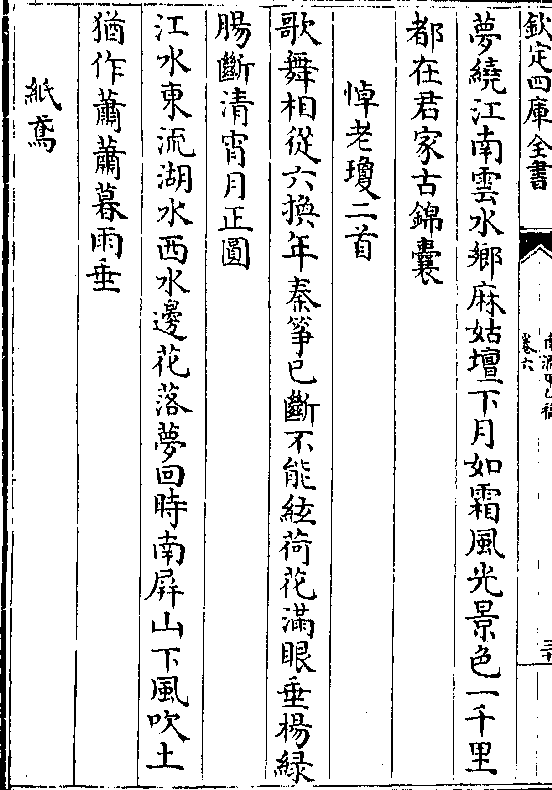 欽定四庫全書
卷六
夢繞江南雲水鄉麻姑壇下月如霜風光景色一千里
都在君家古錦囊
悼老瓊二首
歌舞相從六換年秦箏已斷不能絃荷花滿眼垂楊緑
腸斷清宵月正圓
江水東流湖水西水邊花落夢回時南屏山下風吹土
猶作蕭蕭暮雨垂
紙鳶